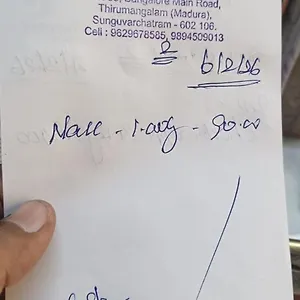 Bangalore Main Road,
Thirumangalam (Madura),
Sunguvarchatram - 602 106.
Cell : 9629678585, 9894509013
2
6/2/26
Nall - 1.00g - 90.00